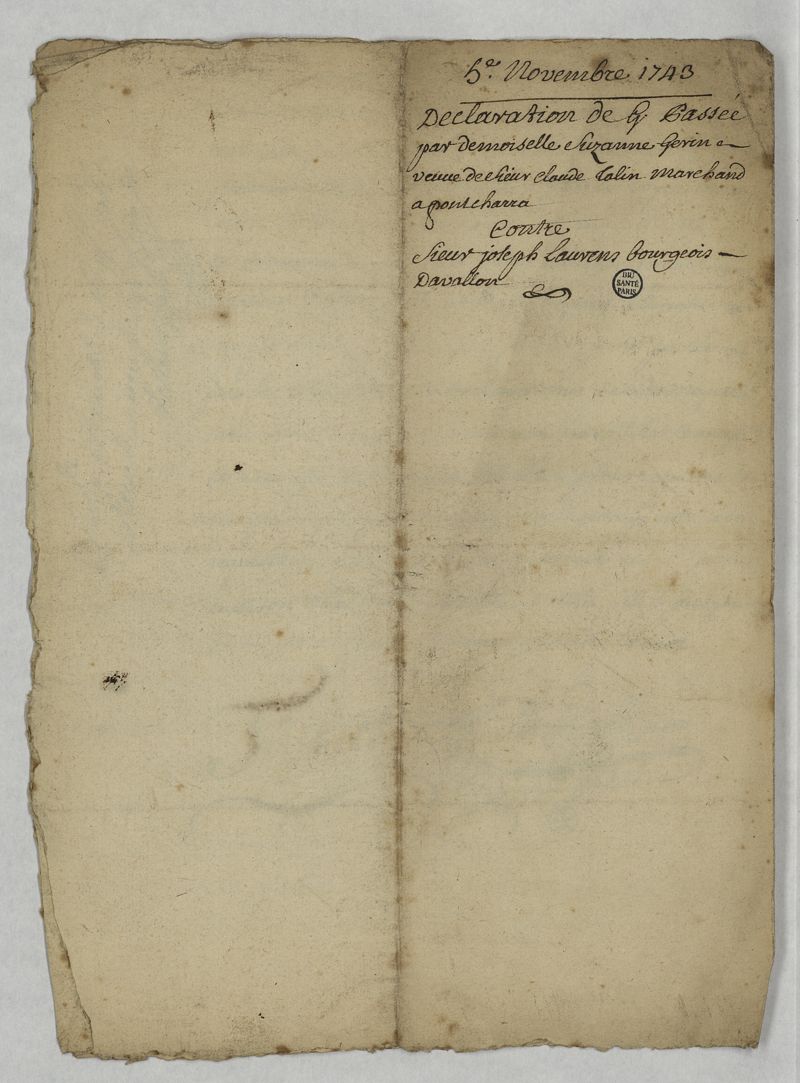 5e. Novembre 1743
Declaration de G Passée
par demoiselle Suzanne Gerin
veuue de Sieur Claude Talin Marchand
a pontcharra
Contre
Sieur joseph Laurens bourgeois
Davallon
BIU
SANTÉ
PARIS